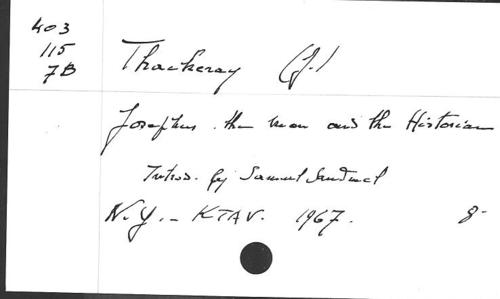 403
115
7B
Thackeray (J.)
Josephus. the man and the Historian
Introd. by Samuel Sandmel
N.Y. - KTAV. 1967. 8-